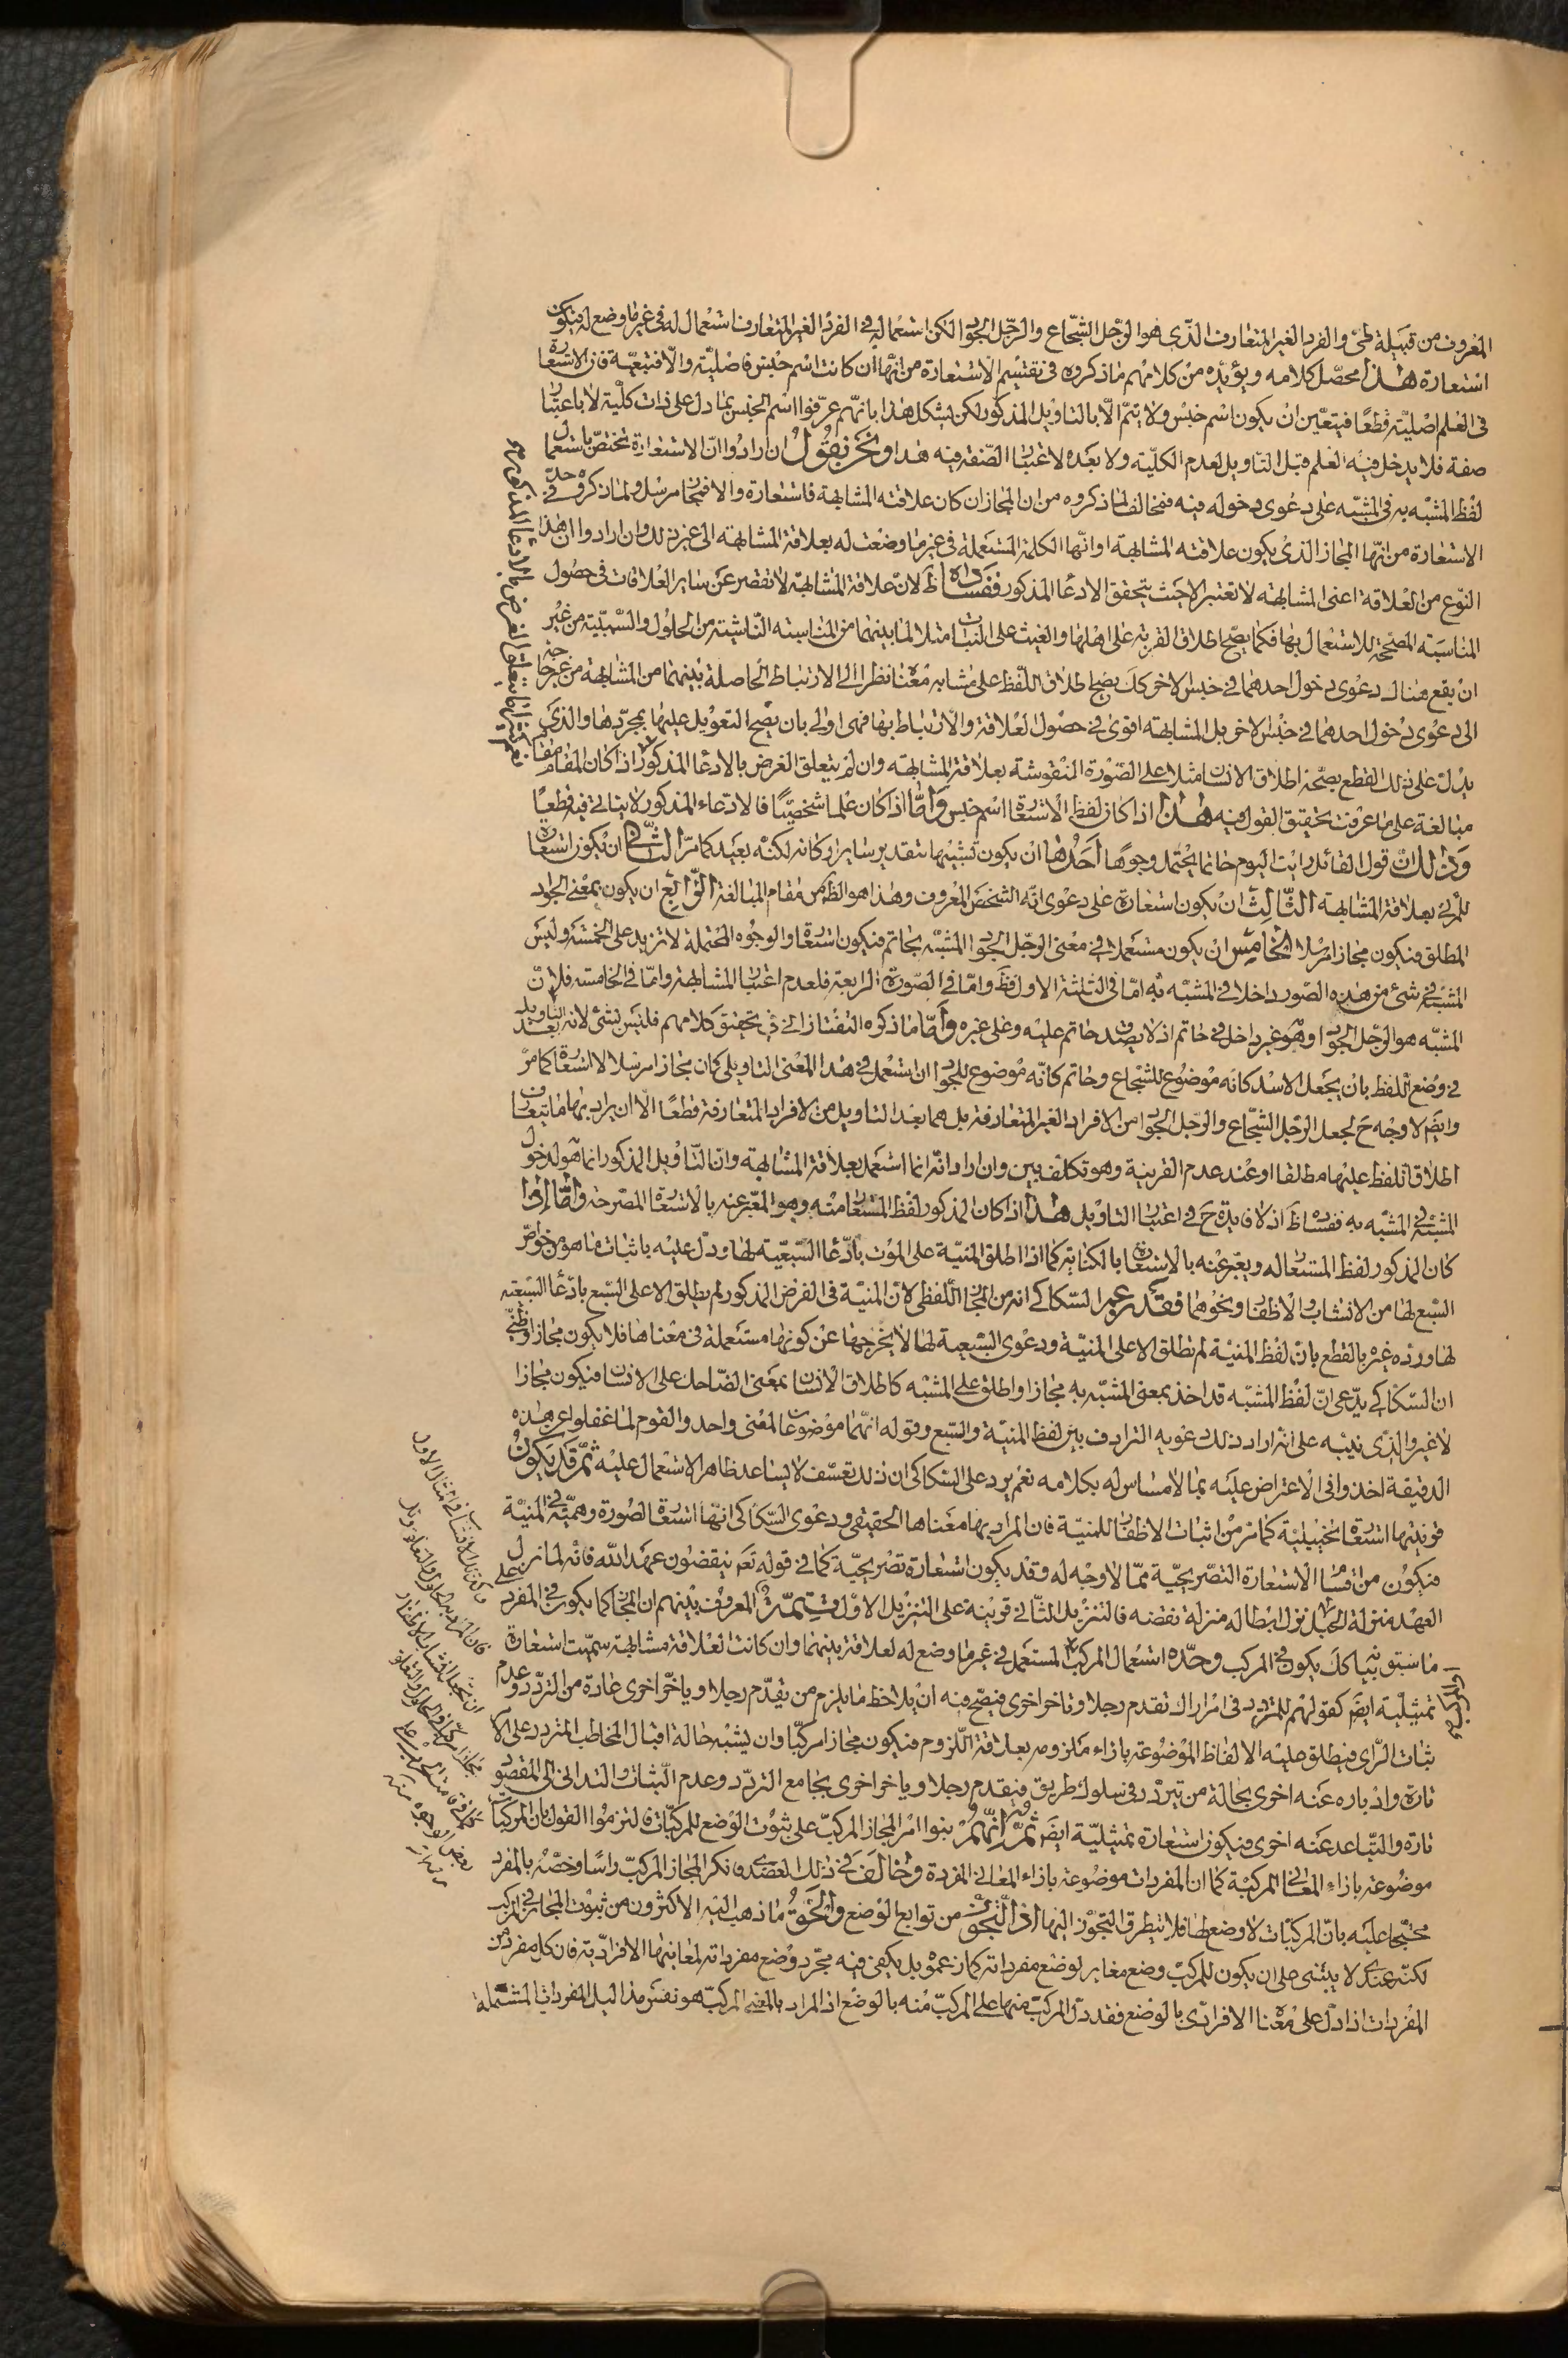 المعروف من قبيلة طىّ والفرد الغير المتعارف الذى هو الرجل الشجاع والرجل الجواد لكن استعماله فى الفرد الغير المتعارف استعمال له فى غير ما وضع له فيكون
استعارة هذا محصل كلامه ويؤيده من كلامهم ما ذكروه فى تقسيم الاستعارة من انها ان كانت اسم جنس فاصلية والا فتبعية فان الاستعارة
فى العلم اصلية قطعا فيتعين ان يكون اسم جنس ولا يتم الا بالتاويل المذكور لكن يشكل هذا بانهم عرفوا اسم الجنس بما دل على ذات كلية لا باعتبار
صفة فلا يدخل فيه العلم قبل التاويل لعدم الكلية ولا بعده لاعتبار الصفة فيه هذا ونحن نقول ان ارادوا ان الاستعارة تختص باستعمال
لفظ المشبه به فى المشبه على دعوى دخوله فيه فمخالف لما ذكروه من ان المجاز ان كان علاقته المشابهة فاستعارة والا فمجاز مرسل ولما ذكروه فى حد
الاستعارة من انها المجاز الذى يكون علاقته المشابهة او انها الكلمة المستعملة فى غير ما وضعت له بعلاقة المشابهة الى غير ذلك وان ارادوا ان هذا
النوع من العلاقة اعنى المشابهة لا تعتبر الا حيث يتحقق الادعاء المذكور ففساده ظ لان علاقة المشابهة لا تقصر عن ساير العلاقات فى حصول
المناسبة المصححة للاستعمال بها فكما يصح اطلاق القرية على اهلها والغيث على النبات مثلا لما بينهما من المناسبة الناشئة من الحلول والسببية من غير
ان يقع هناك دعوى دخول احدهما فى جنس الاخر كك يصح اطلاق اللفظ على مشابه معناه نظرا الى الارتباط الحاصلة بينهما من المشابهة من غير حاجة
الى دعوى دخول احدهما فى جنس الاخر بل المشابهة اقوى فى حصول العلاقة والارتباط بها فهى اولى بان يصح التعويل عليها بمجردها والذى
يدل على ذلك القطع بصحة اطلاق الانسان مثلا على الصورة المنقوشة بعلاقة المشابهة وان لم يتعلق الغرض بالادعاء المذكور اذا كان المقام مقام
مبالغة على ما عرفت تحقيق القول فيه هذا اذا كان لفظ الاستعارة اسم جنس واما اذا كان علما شخصيا فالادعاء المذكور لا يتاتى فيه قطعا
وذلك لان قول القائل رايت اليوم حاتما يحتمل وجوها احدها ان يكون تشبيها بتقدير ساير اركانه لكنه بعيد كما مر الثانى ان يكون استعارة
للمرئى بعلاقة المشابهة الثالث ان يكون استعارة على دعوى انه الشخص المعروف وهذا هو الظ من مقام المبالغة الرابع ان يكون بمعنى الجواد
المطلق فيكون مجازا مرسلا الخامس ان يكون مستعملا فى معنى الرجل الجواد المشبه بحاتم فيكون استعارة والوجوه المحتملة لا تزيد على الخمسة وليس
المشبه فى شئ من هذه الصور داخلا فى المشبه به اما فى الثلثة الاول فظ واما فى الصورة الرابعة فلعدم اعتبار المشابهة واما فى الخامسة فلان
المشبه هو الرجل الجواد وهو غير داخل فى حاتم اذ لا يصدق حاتم عليه وعلى غيره واما ما ذكره التفتازانى فى تحقيق كلامهم فليس بشئ لانه بعد التاويل
فى وضع اللفظ بان يجعل الاسد كانه موضوع للشجاع وحاتم كانه موضوع للجواد ان استعمل فى هذا المعنى التاويلى كان مجازا مرسلا لا استعارة كما مر
وايضا لا وجه ح لجعل الرجل الشجاع والرجل الجواد من الافراد الغير المتعارفة بل هما بعد التاويل من الافراد المتعارفة قطعا الا ان يراد بها ما يتعارف
اطلاق اللفظ عليها مطلقا او عند عدم القرينة وهو تكلف بين وان اراد انه انما استعمل بعلاقة المشابهة وان التاويل المذكور انما هو لدخول
المشبه فى المشبه به ففساده ظ اذ لا فايدة ح فى اعتبار التاويل هذا اذا كان المذكور لفظ المستعار منه وهو المعبر عنه بالاستعارة المصرحة واما اذا
كان المذكور لفظ المستعار له ويعبر عنه بالاستعارة بالكناية كما اذا اطلق المنية على الموت بادعاء السبعية لها ودل عليه باثبات ما هو من خواص
السبع لها من الانشاب والاظفار ونحوهما فقد زعم السكاكى انه من المجاز اللفظى لان المنية فى الفرض المذكور لم يطلق الا على السبع بادعاء السبعية
لها ورده غيره بالقطع بان لفظ المنية لم تطلق الا على المنية ودعوى السبعية لها لا يخرجها عن كونها مستعملة فى معناها فلا يكون مجازا وظنى
ان السكاكى يدعى ان لفظ المشبه قد اخذ بمعنى المشبه به مجازا واطلق على المشبه كاطلاق الانسان بمعنى الضاحك على الانسان فيكون مجازا
لا غير والذى نبه على انه اراد ذلك دعويه الترادف بين لفظ المنية والسبع وقوله انهما موضوعان لمعنى واحد والقوم لما غفلوا عن هذه
الدقيقة اخذوا فى الاعتراض عليه بما لا مساس له بكلامه نعم يرد على السكاكى ان ذلك تعسف لا يساعد ظاهر الاستعمال عليه ثم قد يكون
قرينتها استعارة تخييلية كما مر من اثبات الاظفار للمنية فان المراد بها معناها الحقيقى ودعوى السكاكى انها استعارة لصورة وهمية فى المنية
فيكون من اقسام الاستعارة التصريحية مما لا وجه له وقد يكون استعارة تصريحية كما فى قوله تعالى ينقضون عهد الله فانه لما نزل
العهد منزلة الحبل نزل ابطاله منزلة نقضه فالتنزيل الثانى قرينة على التنزيل الاول تتمة المعروف بينهم ان المجاز كما يكون فى المفرد على
ما سبق بيانه كك يكون فى المركب وحدوه استعمال المركب المستعمل فى غير ما وضع له لعلاقة بينهما وان كانت العلاقة مشابهة سميت استعارة
تمثيلية ايضا كقولهم للمتردد فى امر اراك تقدم رجلا وتاخر اخرى فيصح فيه ان يلاحظ ما يلزم من يقدم رجلا وياخر اخرى عادة من التردد وعدم
ثبات الراى فيطلق عليه الالفاظ الموضوعة بازاء ملزومه بعلاقة اللزوم فيكون مجازا مركبا وان يشبه حالة اقبال المخاطب المتردد على الامر
تارة وادباره عنه اخرى بحالة من يتردد فى سلوك طريق فيقدم رجلا وياخر اخرى بجامع التردد وعدم الثبات والتدانى الى المقصود
تارة والتباعد عنه اخرى فيكون استعارة تمثيلية ايضا ثم انهم بنوا امر المجاز المركب على ثبوت الوضع للمركبات فالتزموا القول بان المركبات
موضوعة بازاء المعانى المركبة كما ان المفردات موضوعة بازاء المعانى المفردة وخالف فى ذلك العضدى فانكر المجاز المركب راسا وخصه بالمفرد
محتجا عليه بان المركبات لا وضع لها فلا يتطرق التجوز اليها اذ التجوز من توابع الوضع والحق ما ذهب اليه الاكثرون من ثبوت المجاز فى المركب
لكنه عندى لا يبتنى على ان يكون للمركب وضع مغاير لوضع مفرداته كما زعموه بل يكفى فيه مجرد وضع مفرداته لمعانيها الافرادية فان كل مفرد من
المفردات اذا دل على معناه الافرادى بالوضع فقد دل المركب منها على المركب منه بالوضع اذ المراد بالمعنى المركب هو نفس مداليل المفردات المشتملة